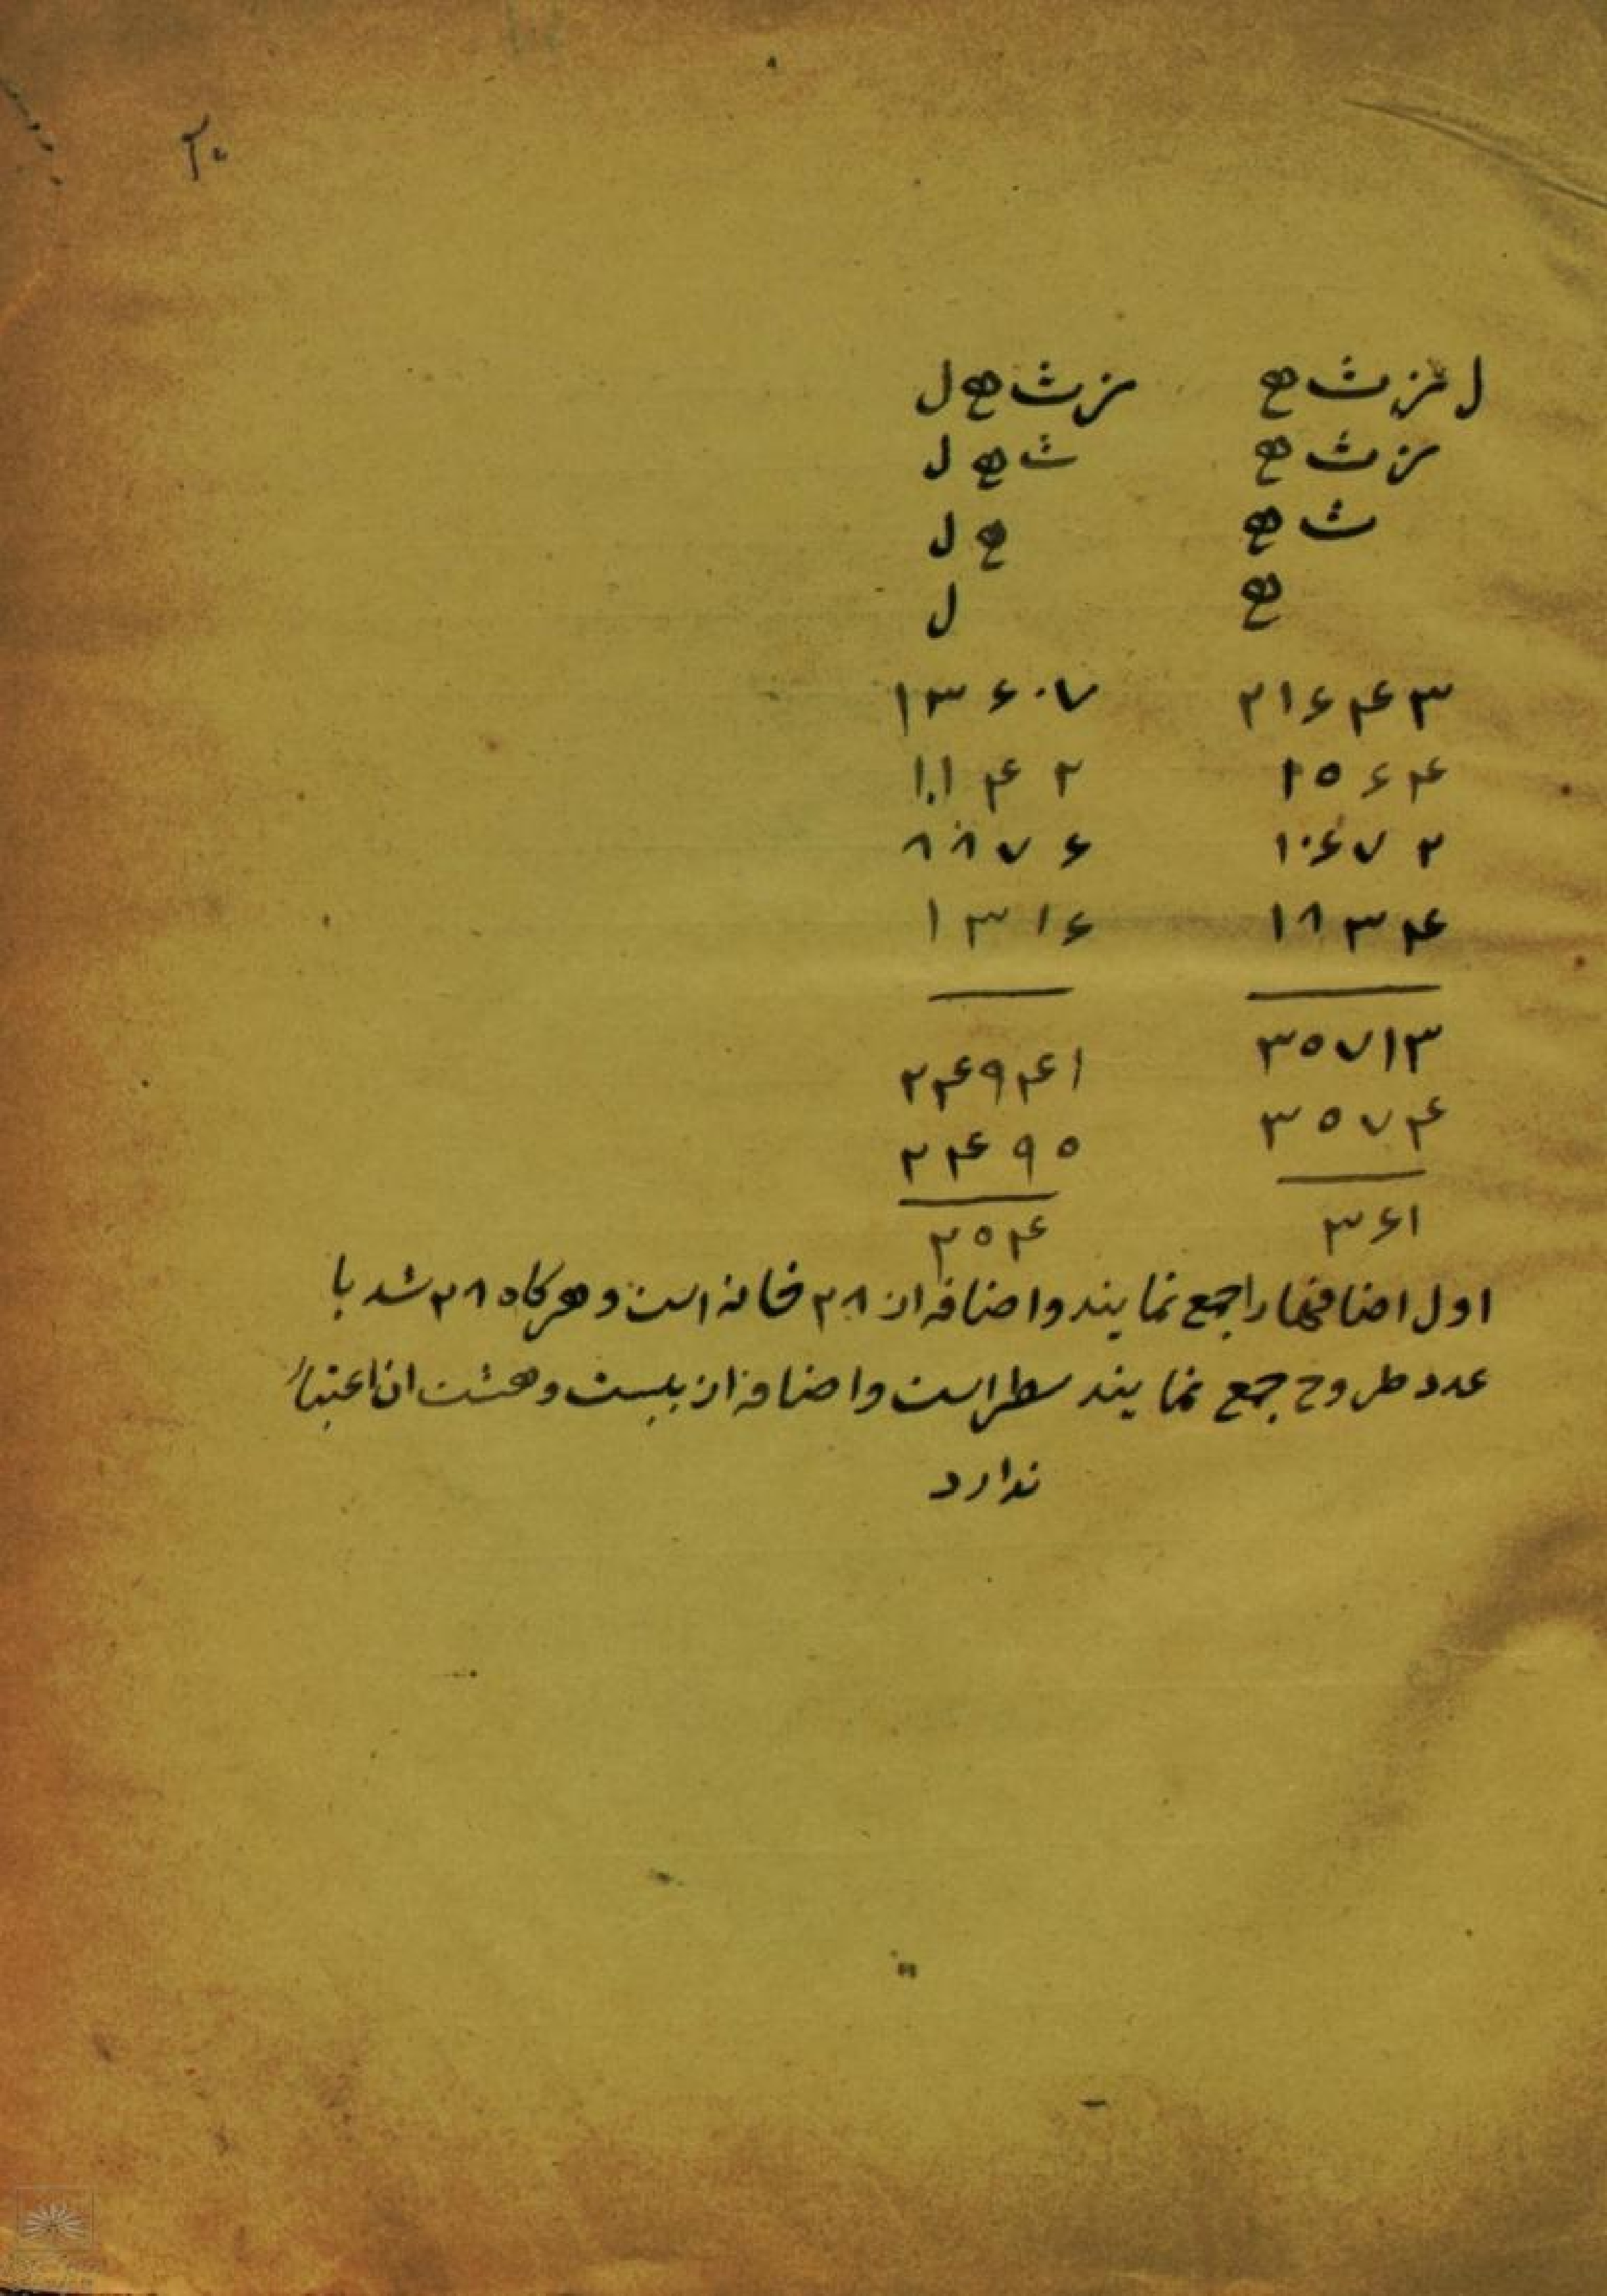 ۲۰
ل مز ث هح    مز ث هح ل
مز ث هح    ث هح ل
ث هح    هح ل
هح    ل
۲۱۶۴۳    ۱۳۶۰۷
۲۵۶۴    ۱۰۱۴۲
۱۰۶۷۲    ۸۸۷۶
۱۸۳۴    ۱۳۱۶
۳۵۷۱۳    ۲۴۹۴۱
۳۵۷۴    ۲۴۹۵
۳۶۱    ۲۵۴
اول اضافها را جمع نمایند و اضافه از ۲۸ خانه است و هرکاه ۲۸ شد با
عدد مطروح جمع نمایند سطر است و اضافه از بیست و هشت ان اعتبار
ندارد